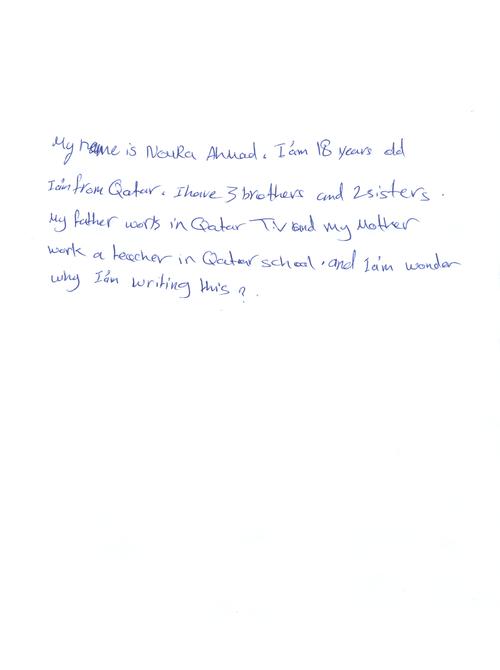 My name is Noura Ahmad. I'am 18 years old
I'am from Qatar. I have 3 brothers and 2 sisters.
My father work in Qatar T.V and my Mother
work a teacher in Qatar school. and I'am wonder
why I'am writing this?.